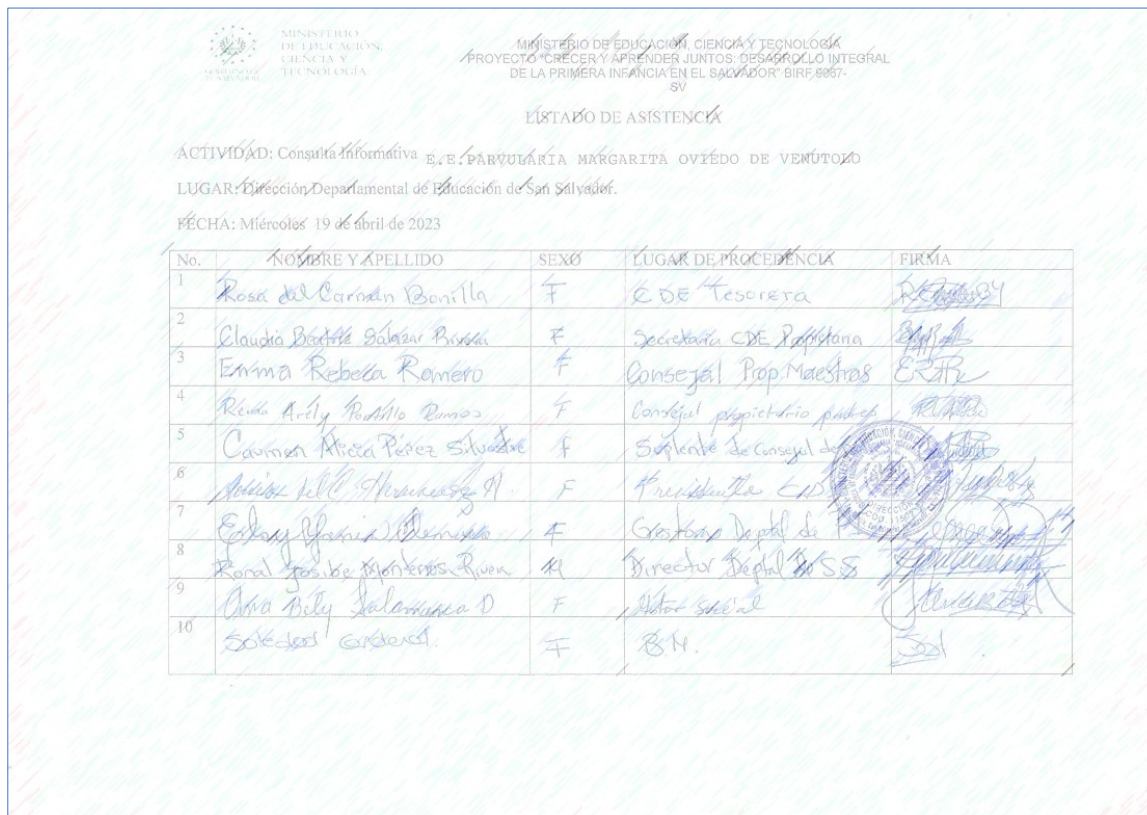 MINISTERIO
DE EDUCACIÓN,
CIENCIA Y
TECNOLOGÍA
GOBIERNO DE
EL SALVADOR
MINISTERIO DE EDUCACIÓN, CIENCIA Y TECNOLOGÍA
PROYECTO "CRECER Y APRENDER JUNTOS: DESARROLLO INTEGRAL
DE LA PRIMERA INFANCIA EN EL SALVADOR" BIRF 9067-
SV
LISTADO DE ASISTENCIA
ACTIVIDAD: Consulta Informativa E.E.PARVULARIA MARGARITA OVIEDO DE VENUTOLO
LUGAR: Dirección Departamental de Educación de San Salvador.
FECHA: Miércoles 19 de abril de 2023
No. NOMBRE Y APELLIDO SEXO LUGAR DE PROCEDENCIA FIRMA
1 Rosa del Carmen Bonilla F CDE Tesorera
2 Claudia Beatriz Salazar F Secretaria CDE Propietaria
3 Emma Rebeca Romero F Consejal Prop. Maestras
4 Arély Ramos F Consejal propietario padres
5 Carmen Alicia Pérez Silvestre F Suplente de Consejal de
6 del C. Hernández F Presidenta
7 F Gestora Deptal de
8 Ronal Josibe Monterrosa Rivera M Director Deptal S.S
9 Bely Salamanca D F social
10 Soledad F B.M. Sol